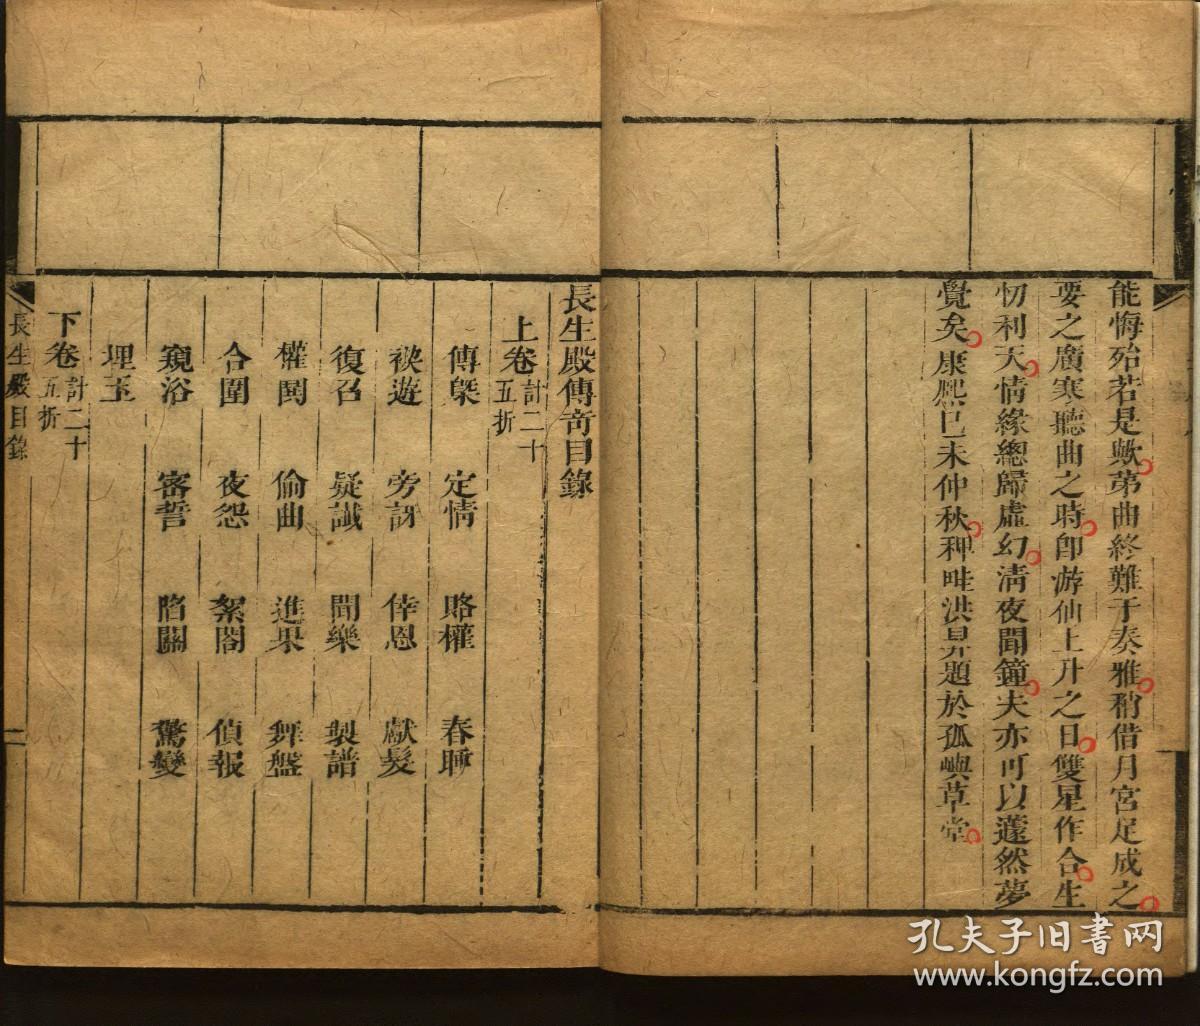 能悔殆若是歟第曲終難于奏雅稍借月宮足成之
要之廣寒聽曲之時卽游仙上升之日雙星作合生
忉利天情緣總歸虛幻清夜聞鐘夫亦可以蘧然夢
覺矣康熙己未仲秋稗畦洪昇題於孤嶼草堂
長生殿傳奇目錄
上卷 計二十五折
傳槩 定情 賂權 春睡
禊遊 旁訝 倖恩 獻髮
復召 疑讖 聞樂 製譜
權鬨 偷曲 進果 舞盤
合圍 夜怨 絮閣 偵報
窺浴 密誓 陷關 驚變
埋玉
下卷 計二十五折
長生殿目錄 二
孔夫子旧書网
www.kongfz.com